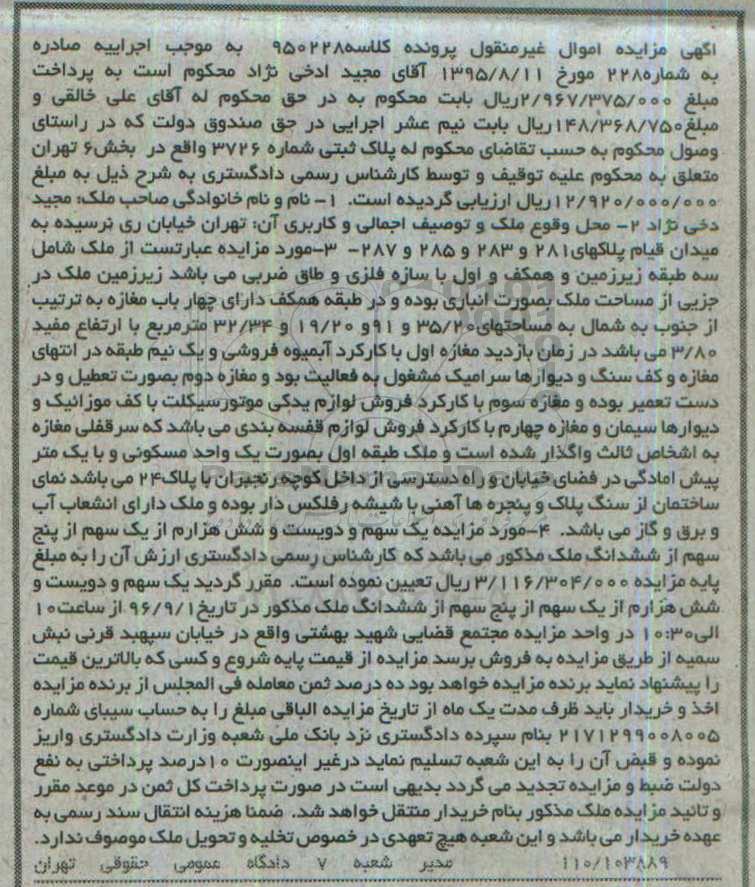 اگهی مزایده اموال غیرمنقول پرونده کلاسه۹۵۰۲۲۸ به موجب اجراییه صادره
به شماره۲۲۸ مورخ ۱۳۹۵/۸/۱۱ آقای مجید ادخی نژاد محکوم است به پرداخت
مبلغ ۲/۹۶۷/۳۷۵/۰۰۰ریال بابت محکوم به در حق محکوم له آقای علی خالقی و
مبلغ۱۴۸/۳۶۸/۷۵۰ریال بابت نیم عشر اجرایی در حق صندوق دولت که در راستای
وصول محکوم به حسب تقاضای محکوم له پلاک ثبتی شماره ۳۷۲۶ واقع در بخش۶ تهران
متعلق به محکوم علیه توقیف و توسط کارشناس رسمی دادگستری به شرح ذیل به مبلغ
۱۲/۹۲۰/۰۰۰/۰۰۰ریال ارزیابی گردیده است. ۱- نام و نام خانوادگی صاحب ملک: مجید
دخی نژاد ۲- محل وقوع ملک و توصیف اجمالی و کاربری آن: تهران خیابان ری نرسیده به
میدان قیام پلاکهای۲۸۱ و ۲۸۳ و ۲۸۵ و ۲۸۷- ۳-مورد مزایده عبارتست از ملک شامل
سه طبقه زیرزمین و همکف و اول با سازه فلزی و طاق ضربی می باشد زیرزمین ملک در
جزیی از مساحت ملک بصورت انباری بوده و در طبقه همکف دارای چهار باب مغازه به ترتیب
از جنوب به شمال به مساحتهای۳۵/۲۰ و ۹۱و ۱۹/۲۰ و ۳۲/۳۴ مترمربع با ارتفاع مفید
۳/۸۰ می باشد در زمان بازدید مغازه اول با کارکرد آبمیوه فروشی و یک نیم طبقه در انتهای
مغازه و کف سنگ و دیوارها سرامیک مشغول به فعالیت بود و مغازه دوم بصورت تعطیل و در
دست تعمیر بوده و مغازه سوم با کارکرد فروش لوازم یدکی موتورسیکلت با کف موزائیک و
دیوارها سیمان و مغازه چهارم با کارکرد فروش لوازم قفسه بندی می باشد که سرقفلی مغازه
به اشخاص ثالث واگذار شده است و ملک طبقه اول بصورت یک واحد مسکونی و با یک متر
پیش امادگی در فضای خیابان و راه دسترسی از داخل کوچه رنجبران با پلاک۲۴ می باشد نمای
ساختمان از سنگ پلاک و پنجره ها آهنی با شیشه رفلکس دار بوده و ملک دارای انشعاب آب
و برق و گاز می باشد. ۴-مورد مزایده یک سهم و دویست و شش هزارم از یک سهم از پنج
سهم از ششدانگ ملک مذکور می باشد که کارشناس رسمی دادگستری ارزش آن را به مبلغ
پایه مزایده ۳/۱۱۶/۳۰۴/۰۰۰ ریال تعیین نموده است. مقرر گردید یک سهم و دویست و
شش هزارم از یک سهم از پنج سهم از ششدانگ ملک مذکور در تاریخ۹۶/۹/۱ از ساعت۱۰
الی۱۰:۳۰ در واحد مزایده مجتمع قضایی شهید بهشتی واقع در خیابان سپهبد قرنی نبش
سمیه از طریق مزایده به فروش برسد مزایده از قیمت پایه شروع و کسی که بالاترین قیمت
را پیشنهاد نماید برنده مزایده خواهد بود ده درصد ثمن معامله فی المجلس از برنده مزایده
اخذ و خریدار باید ظرف مدت یک ماه از تاریخ مزایده الباقی مبلغ را به حساب سیبای شماره
۲۱۷۱۲۹۹۰۰۸۰۰۵ بنام سپرده دادگستری نزد بانک ملی شعبه وزارت دادگستری واریز
نموده و قبض آن را به این شعبه تسلیم نماید درغیر اینصورت ۱۰درصد پرداختی به نفع
دولت ضبط و مزایده تجدید می گردد بدیهی است در صورت پرداخت کل ثمن در موعد مقرر
و تائید مزایده ملک مذکور بنام خریدار منتقل خواهد شد. ضمنا هزینه انتقال سند رسمی به
عهده خریدار می باشد و این شعبه هیچ تعهدی در خصوص تخلیه و تحویل ملک موصوف ندارد.
۱۱۰/۱۰۳۸۸۹ مدیر شعبه ۷ دادگاه عمومی حقوقی تهران